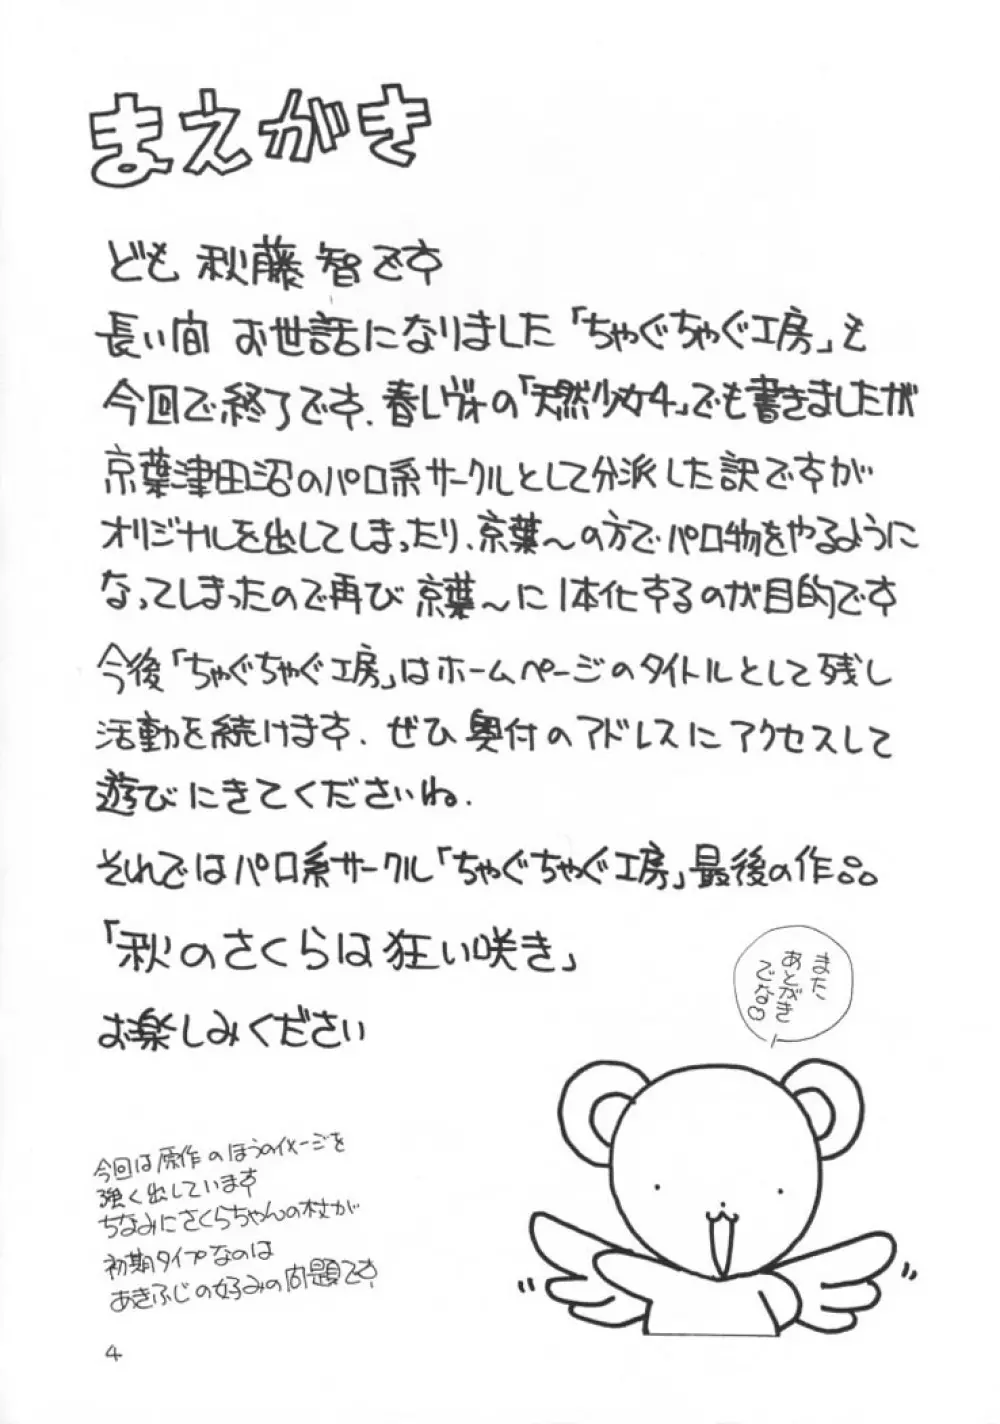 まえがき
ども 秋藤 智です
長い間 お世話になりました「ちゃぐちゃぐ工房」も
今回で終了です、春レヴォの「天然少女4」でも書きましたが
京葉津田沼のパロ系サークルとして分派した訳ですが
オリジナルを出してしまったり、京葉～の方でパロ物をやるように
なってしまったので再び京葉～に1本化するのが目的です
今後「ちゃぐちゃぐ工房」はホームページのタイトルとして残し
活動を続けます、ぜひ奥付のアドレスにアクセスして
遊びにきてくださいね.
それではパロ系サークル「ちゃぐちゃぐ工房」最後の作品
「秋のさくらは狂い咲き」
お楽しみください
また、
あとがき
でな
今回は原作のほうのイメージを
強く出しています
ちなみにさくらちゃんの杖が
初期タイプなのは
あきふじの好みの問題です
4